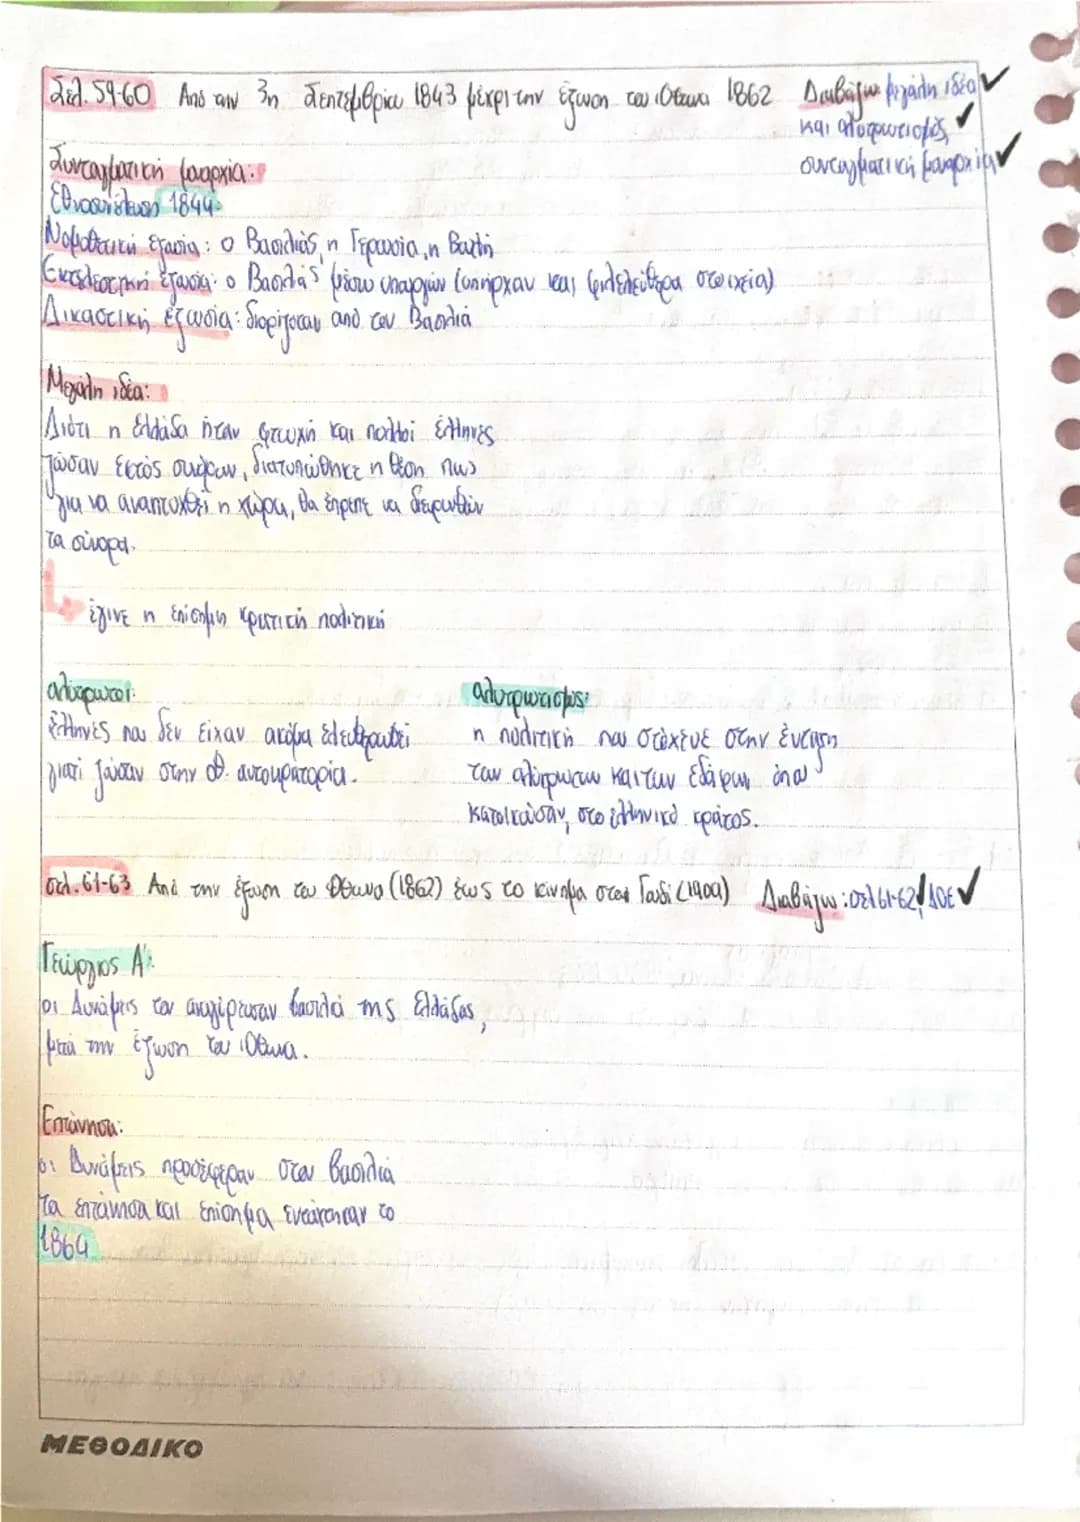 Σελ. 59-60 Από την 3η Σεπτεμβρίου 1843 μέχρι την έξωση του Όθωνα 1862 Διαβάζω μεγάλη ιδέα
και αλυτρωτισμός,
συνταγματική μοναρχία
Συνταγματική μοναρχία:
Εθνοσυνέλευση 1844
Νομοθετική εξουσία: ο Βασιλιάς, η Γερουσία, η Βουλή
Εκτελεστική εξουσία: ο Βασιλιάς μέσω υπουργών (υπήρχαν και φιλελεύθερα στοιχεία)
Δικαστική εξουσία: διοριζόταν από τον Βασιλιά
Μεγάλη ιδέα:
Διότι η Ελλάδα ήταν φτωχή και πολλοί έλληνες
ζούσαν εκτός συνόρων, διατυπώθηκε η θέση πως
για να αναπτυχθεί η χώρα, θα έπρεπε να διευρυνθούν
τα σύνορα.
έγινε η επίσημη κρατική πολιτική
αλύτρωτοι:
έλληνες που δεν είχαν ακόμα ελευθερωθεί
γιατί ζούσαν στην Οθ. αυτοκρατορία.
αλυτρωτισμός:
η πολιτική που στόχευε στην ένταξη
των αλύτρωτων και των εδάφων όπου
κατοικούσαν, στο ελληνικό κράτος.
σελ. 61-63 Από την έξωση του Όθωνα (1862) έως το κίνημα στου Γουδί (1909) Διαβάζω: σελ 61-62, ΔΟΕ
Γεώργιος Α':
οι Δυνάμεις τον αναγόρευσαν βασιλιά της Ελλάδας,
μετά την έξωση του Όθωνα.
Επτάνησα:
οι Δυνάμεις προσέφεραν στον βασιλιά
τα επτάνησα και επίσημα εντάχτηκαν το
1864
ΜΕΘΟΔΙΚΟ